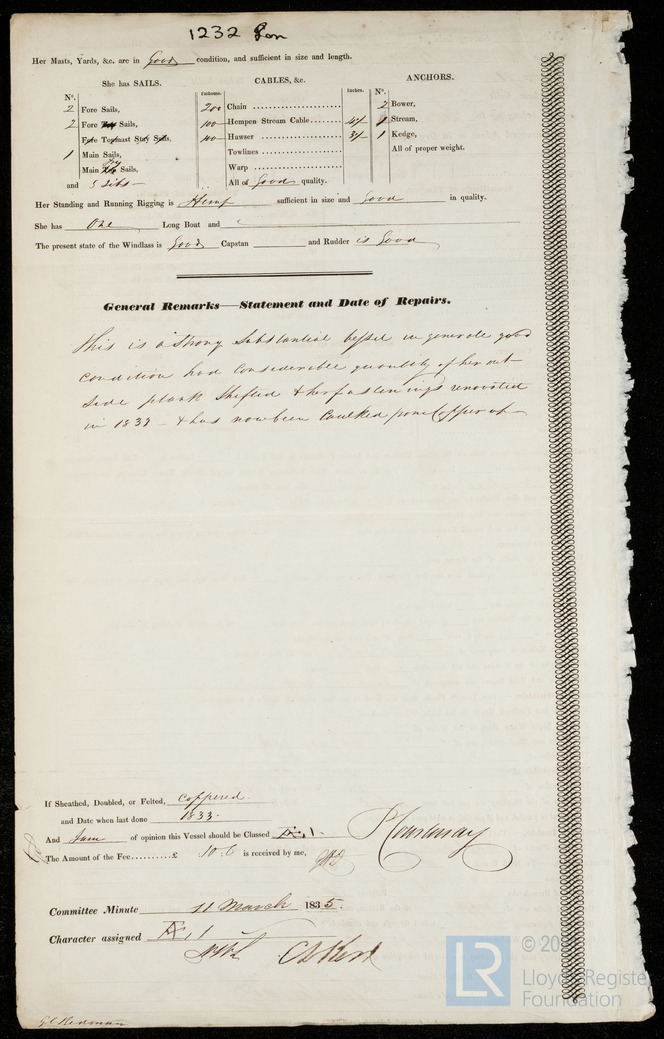 1232 Lon
Her Masts, Yards, &c. are in Good condition, and sufficient in size and length.
She has SAILS. CABLES, &c. ANCHORS.
No. Fathoms. Inches. No.
2 Fore Sails, 200 Chain 2 Bower,
2 Fore Top Sails, 100 Hempen Stream Cable 1 Stream,
Fore Topmast Stay Sails. 100 Hawser 1 Kedge,
1 Main Sails, Towlines All of proper weight.
Main Sails, Warp
and 5 Jibs All of Good quality.
Her Standing and Running Rigging is Hemp sufficient in size and Good in quality.
She has One Long Boat and
The present state of the Windlass is Good Capstan and Rudder is Good
General Remarks—Statement and Date of Repairs.
This is a Strong Substantial vessel in generale good
condition had considerable quantity of her out
side plank shifted & her fastenings renovated
in 1833 & has now been Caulked
If Sheathed, Doubled, or Felted, coppered
and Date when last done 1833.
And I am of opinion this Vessel should be Classed Æ 1.
The Amount of the Fee £ 10. 6 is received by me,
Committee Minute 11 March 1835.
Character assigned Æ 1
G C Redman
LR
Lloyd's Register
Foundation